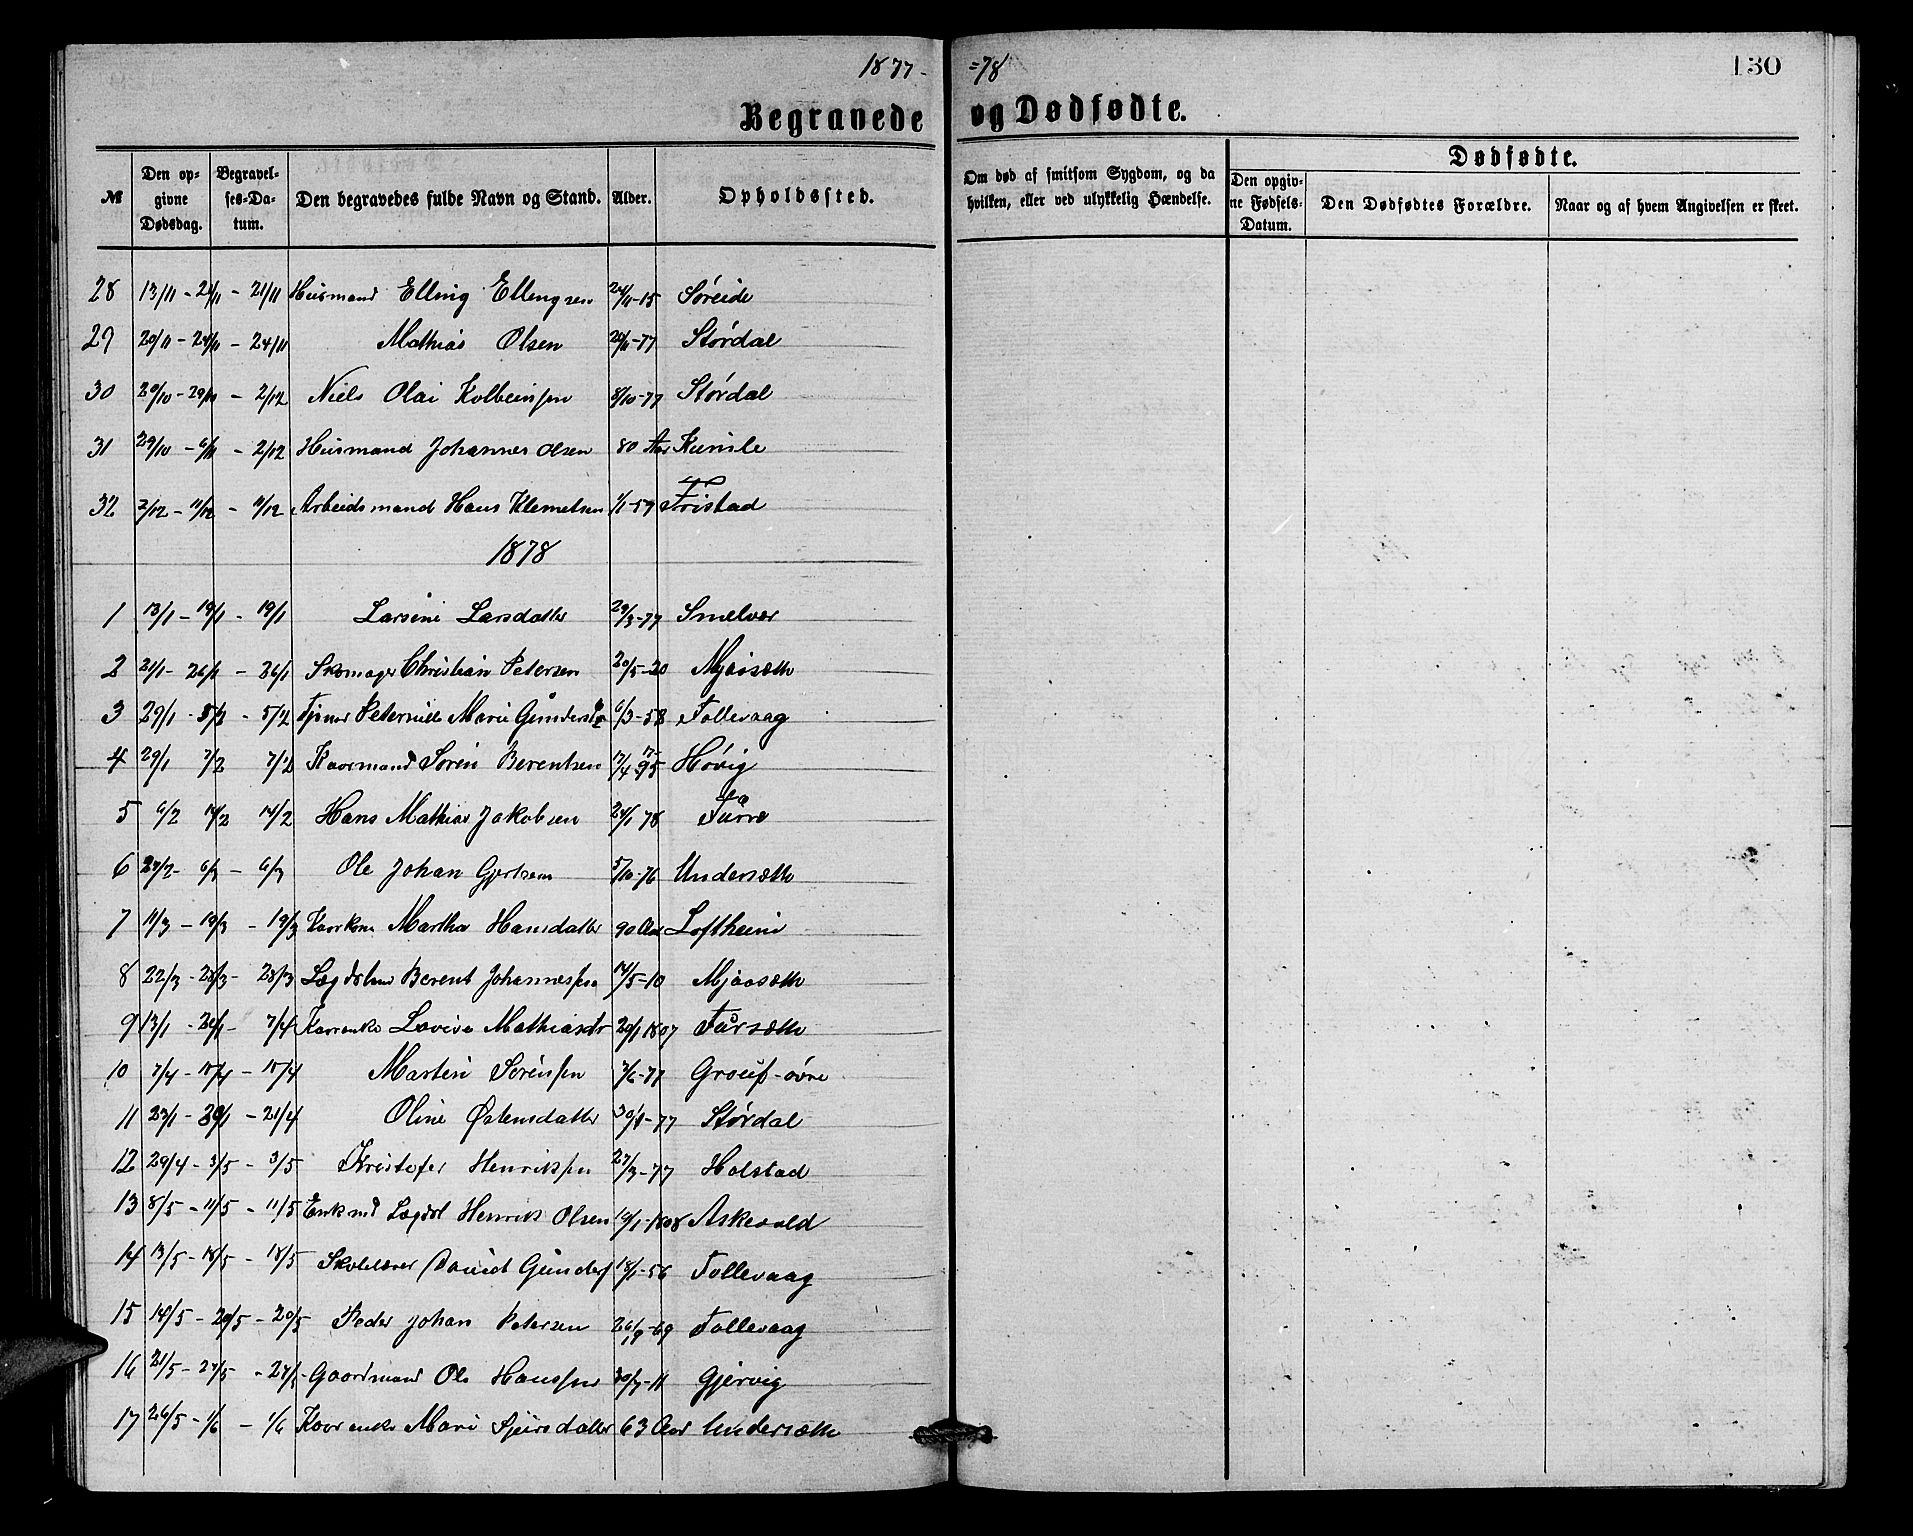 1877- =78 130
Begravede og Dødfødte.
№ Den opgivne Dødsdag. Begravelses-Datum. Den begravedes fulde Navn og Stand. Alder. Opholdssted. Om død af smitsom Sygdom, og da hvilken, eller ved ulykkelig Hændelse. Dødfødte. Den opgivne Fødsels-Datum. Den Dødfødtes Forældre. Naar og af hvem Angivelsen er skeet.
28 13/11 - 21/11 - 21/11 Husmand Elling Ellengsen 24/11-15 Søreide
29 20/11 - 24/11 - 24/11 Mathias Olsen 20/11-77 Størdal
30 20/10 - 29/10 - 2/12 Niels Olai Kolbeinsen 8/10-77 Størdal
31 29/10 - 6/11 - 2/12 Husmand Johannes Olsen 80 Aar Kumle
32 3/12 - 11/12 - 11/12 Arbeidsmand Hans Klemetsen 1/1-59 Fristad
1878
1 13/1 - 19/1 - 19/1 Larsine Larsdatter 29/3-77 Smelvær
2 21/1 - 26/1 - 26/1 Skomager Christian Petersen 20/5-20 Mjaasæth
3 29/1 - 5/2 - 5/2 Tjener Peternille Marie 6/3-58 Follevaag
4 29/1 7/2 7/2 Kaarmand Søren Berentsen 17/4 1795 Høvig
5 6/2 14/2 14/2 Hans Mathias Jakobsen 24/1 78 Furre
6 27/2 - 6/3 - 6/3 Ole Johan Gjertsen 5/10-76 Undersæth
7 11/3 - 19/3 - 19/3 Kaarkone Martha Hansdatter 90 Aar Loftheim
8 22/3 - 28/3 - 28/3 Lægdslem Berent Johannessen 14/5-10 Mjaasæth
9 13/1 - 20/1 - 7/4 Kaarenke Lovise Mathiasdtr 29/1 1807 Fursæth
10 7/4 - 15/4 - 15/4 Martin Sørensen 7/6-77 Groief-øvre
11 23/1 - 29/1 - 21/4 Oline Østensdatter 30/8-77 Størdal
12 29/4 - 3/5 - 3/5 Kristofer Henriksen 27/3-77 Holstad
13 8/5 - 11/5 - 11/5 Enkmd Lægdsl Henrik Olsen 10/1-1808 Askevold
14 13/5 - 18/5 - 18/5 Skolelærer David Gunders 18/1-56 Follevaag
15 14/5 - 20/5 - 20/5 Peder Johan Petersen 26/9-69 Follevaag
16 21/5 - 27/5 - 27/5 Gaardmand Ole Hanssen 30/7-11 Gjervig
17 26/5 - 1/6 - 1/6 Kaarenke Mari Sjursdatter 63 Aar Undersæth